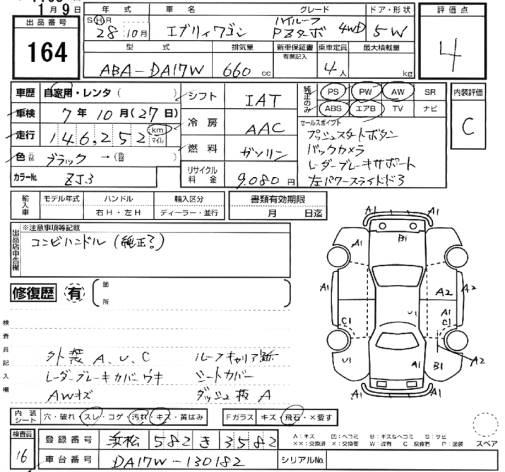 1月9日
出品番号
164
年式 車名 グレード ドア・形状
S H R 28年10月 エブリィワゴン ハイルーフ PZターボ 4WD 5W
型式 排気量 新車保証書 有無記入 乗車定員 最大積載量
ABA-DA17W 660cc 4人 kg
評価点
4
車歴 自家用・レンタ( )
車検 7年10月(27日)
走行 146,252 km マイル
色 ブラック→( )
カラーNo. ZJ3
シフト IAT
冷房 AAC
燃料 ガソリン
リサイクル料金 9,080円
純正のみ
PS PW AW SR
ABS エアB TV ナビ
セールスポイント
プッシュスタートボタン
バックカメラ
レーダーブレーキサポート
左パワースライドドア
内装評価
C
輸入車 モデル年式 ハンドル 輸入区分
年 右H・左H ディーラー・並行
書類有効期限
月 日迄
出品店申告欄
※注意事項等記載
コンビハンドル(純正?)
修復歴 有 箇所
検査員記入欄
外装 A、U、C
レーダーブレーキカバーウキ
AWキズ
ルーフキャリア跡
シートカバー
ダッシュ板A
A1 A1
B1
A1 A1 A2
C1 C1
U1 B1 A2
A1
内装シート 穴・破れ・スレ・コゲ 汚れ・キズ・黄ばみ
Fガラス キズ・飛石・×要す
検査員
16
登録番号 浜松 582 き 3582
車台番号 DA17W-130182
シリアルNo.
スペア